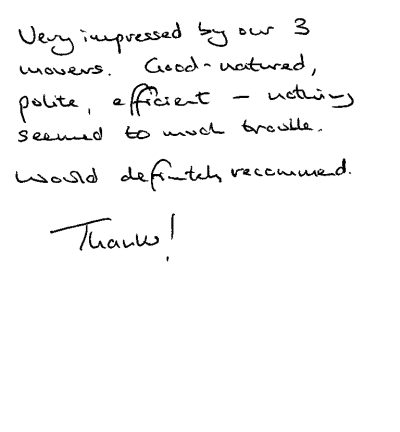 Very impressed by our 3
movers. Good-natured,
polite, efficient – nothing
seemed to much trouble.
Would definitely recommend.
Thanks!